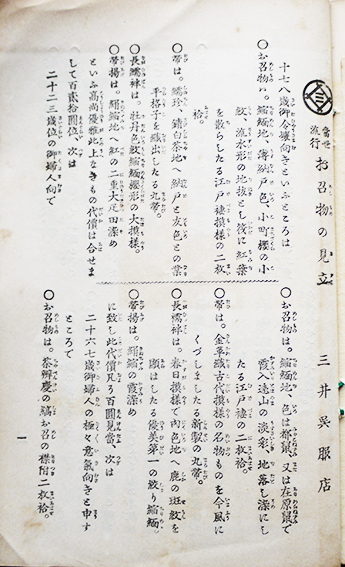 當世流行 お召物の見立 三井呉服店
十七八歳御令孃向きといふところは
〇お召物ハ。縮緬地、薄納戸色、小町櫻の小
紋、流水形の地拔とし筏に紅葉
を散らしたる江戸褄模樣の二枚
袷。
〇帶は。繻珍、錆白茶地へ納戸と友色との業
平格子を織出したる丸帶。
〇長襦袢は。牡丹色紋縮緬櫻形の大模樣。
〇帶揚は。絹縮地、紅の二重大疋田染め
といふ高尚優雅此上なきもの代價は合せま
して百貳拾圓位、次は
二十二三歳位の御婦人向で
〇お召物は。縮緬地、色は都鼠、又は在原鼠で
霞入遠山の淡彩、地落し濠にし
たる江戸褄の二枚袷。
〇帶は。金華織古代模樣の名物ものを今風に
くづしたる新製の丸帶。
〇長襦袢は。春日模樣で肉色地へ鹿の斑紋を
顯はしたる優美第一の絞り縮緬。
〇帶揚は。絹縮の霞染め
に致し此代價凡ろ百圓見當、次は
二十六七歳御婦人の極々意氣向きと申す
ところで
〇お召物は。茶辨慶の縞お召の襟附二枚袷。
一